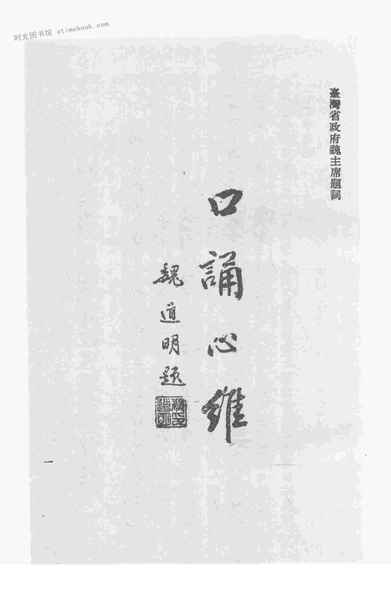 时光图书馆 stimebook.com
臺灣省政府魏主席題詞
口誦心維
魏道明題
一